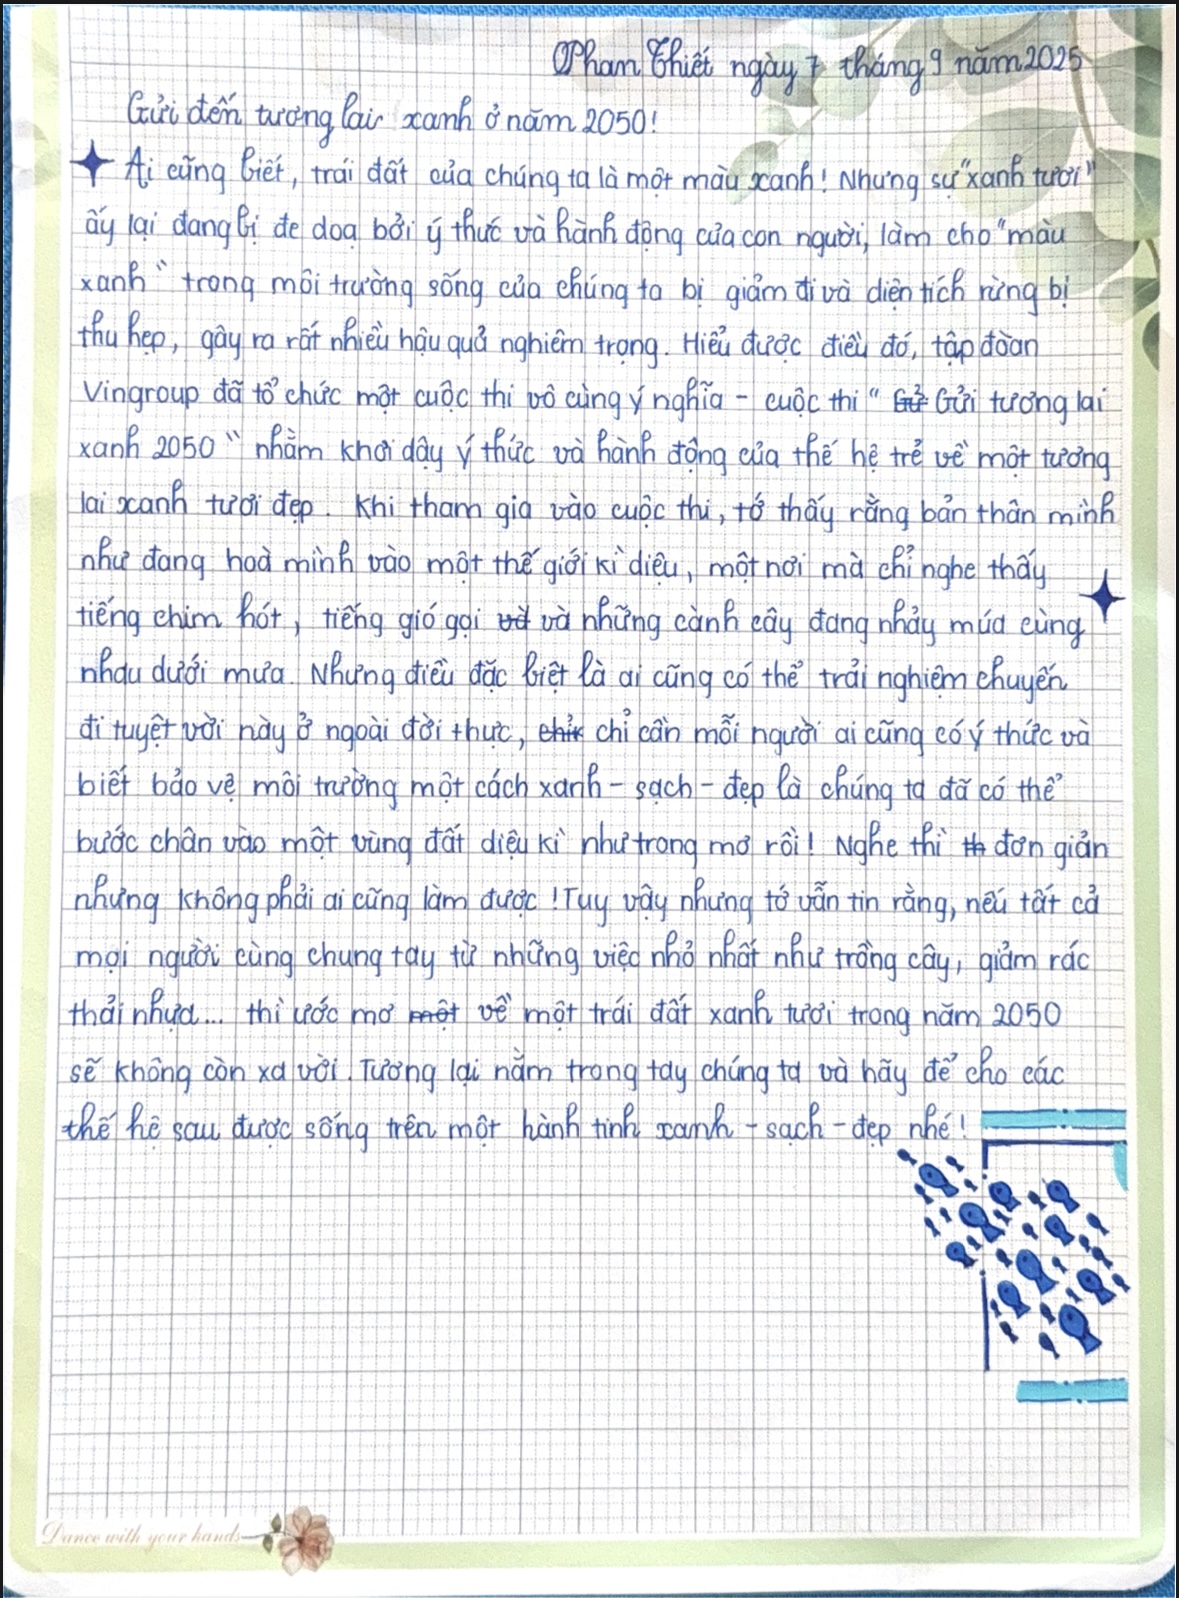 Phan Thiết ngày 7 tháng 9 năm 2025
Gửi đến tương lai xanh ở năm 2050!
Ai cũng biết, trái đất của chúng ta là một màu xanh! Nhưng sự "xanh tươi"
ấy lại đang bị đe doạ bởi ý thức và hành động của con người, làm cho "màu
xanh" trong môi trường sống của chúng ta bị giảm đi và diện tích rừng bị
thu hẹp, gây ra rất nhiều hậu quả nghiêm trọng. Hiểu được điều đó, tập đoàn
Vingroup đã tổ chức một cuộc thi vô cùng ý nghĩa - cuộc thi " Gửi tương lai
xanh 2050 " nhằm khơi dậy ý thức và hành động của thế hệ trẻ về một tương
lai xanh tươi đẹp. Khi tham gia vào cuộc thi, tớ thấy rằng bản thân mình
như đang hoà mình vào một thế giới kì diệu, một nơi mà chỉ nghe thấy
tiếng chim hót, tiếng gió gọi và những cành cây đang nhảy múa cùng
nhau dưới mưa. Nhưng điều đặc biệt là ai cũng có thể trải nghiệm chuyến
đi tuyệt vời này ở ngoài đời thực, chỉ cần mỗi người ai cũng có ý thức và
biết bảo vệ môi trường một cách xanh - sạch - đẹp là chúng ta đã có thể
bước chân vào một vùng đất diệu kì như trong mơ rồi! Nghe thì đơn giản
nhưng không phải ai cũng làm được! Tuy vậy nhưng tớ vẫn tin rằng, nếu tất cả
mọi người cùng chung tay từ những việc nhỏ nhất như trồng cây, giảm rác
thải nhựa... thì ước mơ về một trái đất xanh tươi trong năm 2050
sẽ không còn xa vời. Tương lai nằm trong tay chúng ta và hãy để cho các
thế hệ sau được sống trên một hành tinh xanh - sạch - đẹp nhé!
Dance with your hands